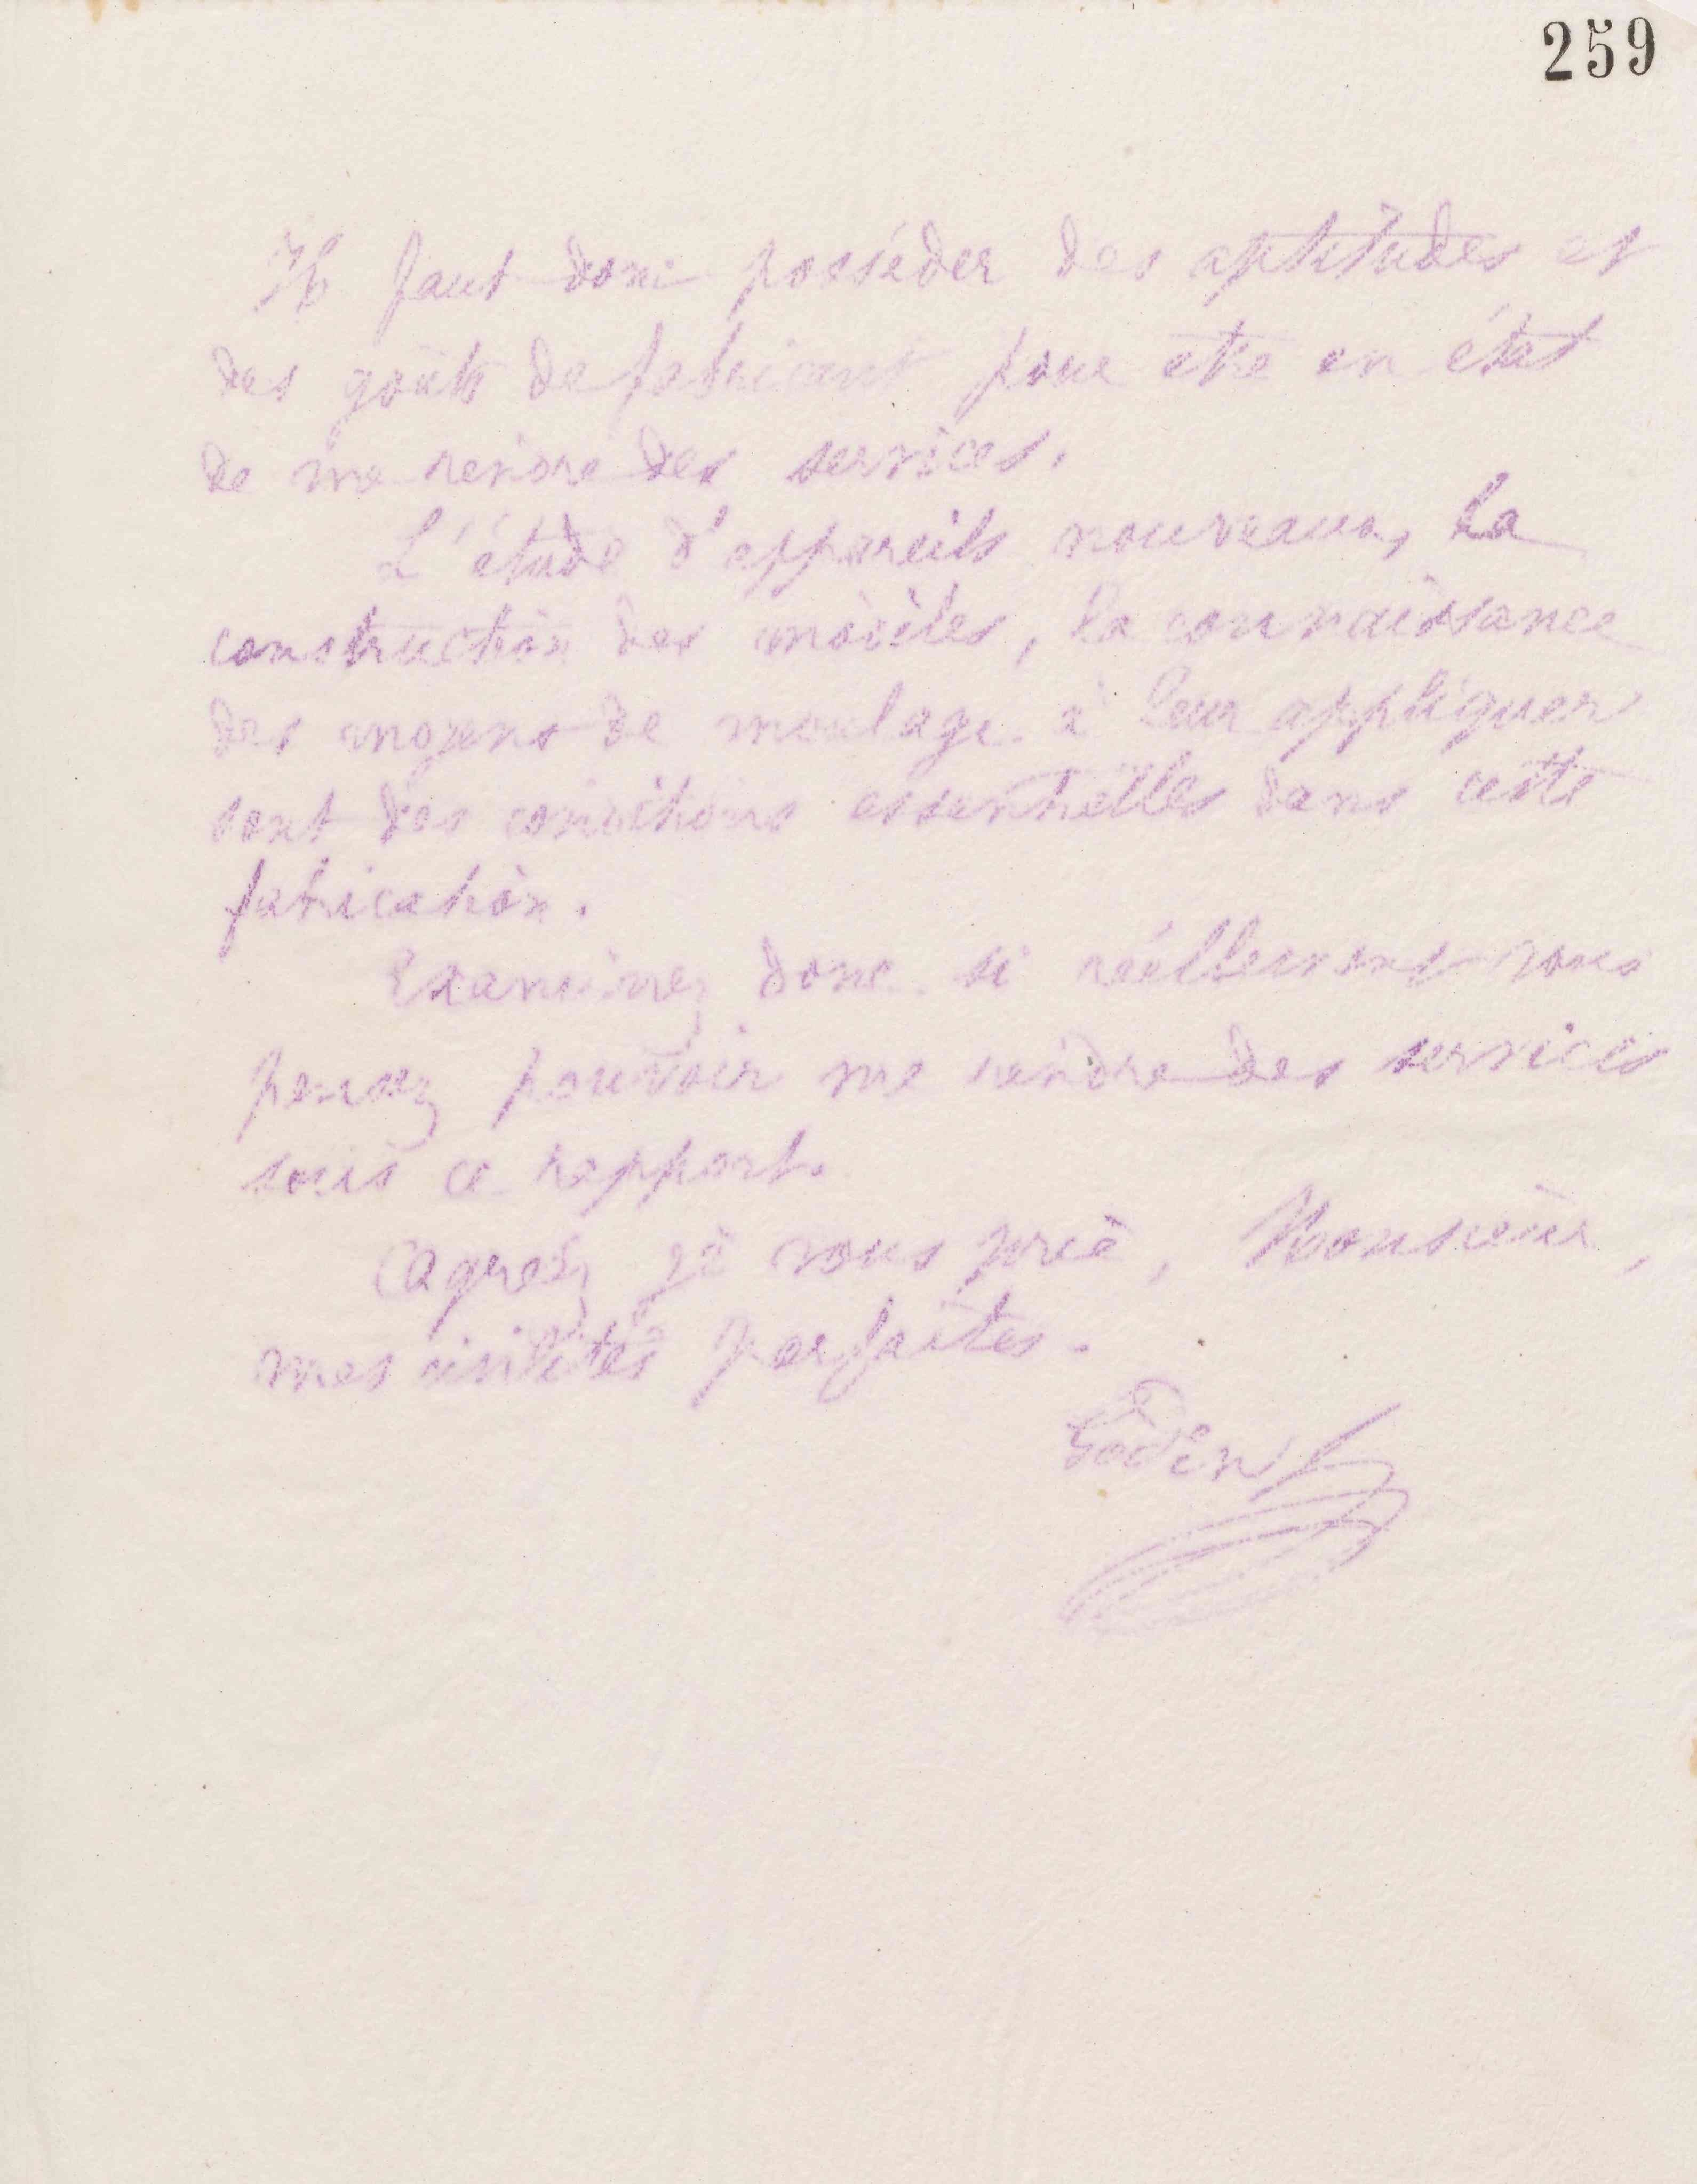 259
Il faut donc posséder des aptitudes et
des goûts de fabricant pour etre en état
de me rendre des services.
L'étude d'appareils nouveaux, la
construction des modèles, la connaissance
des moyens de moulage à leur appliquer
sont des conditions essentielles dans cette
fabrication.
Examinez donc si réellement vous
pensez pouvoir me rendre des services
sous ce rapport.
Agréez je vous prie, Monsieur,
mes civilités parfaites.
Godin